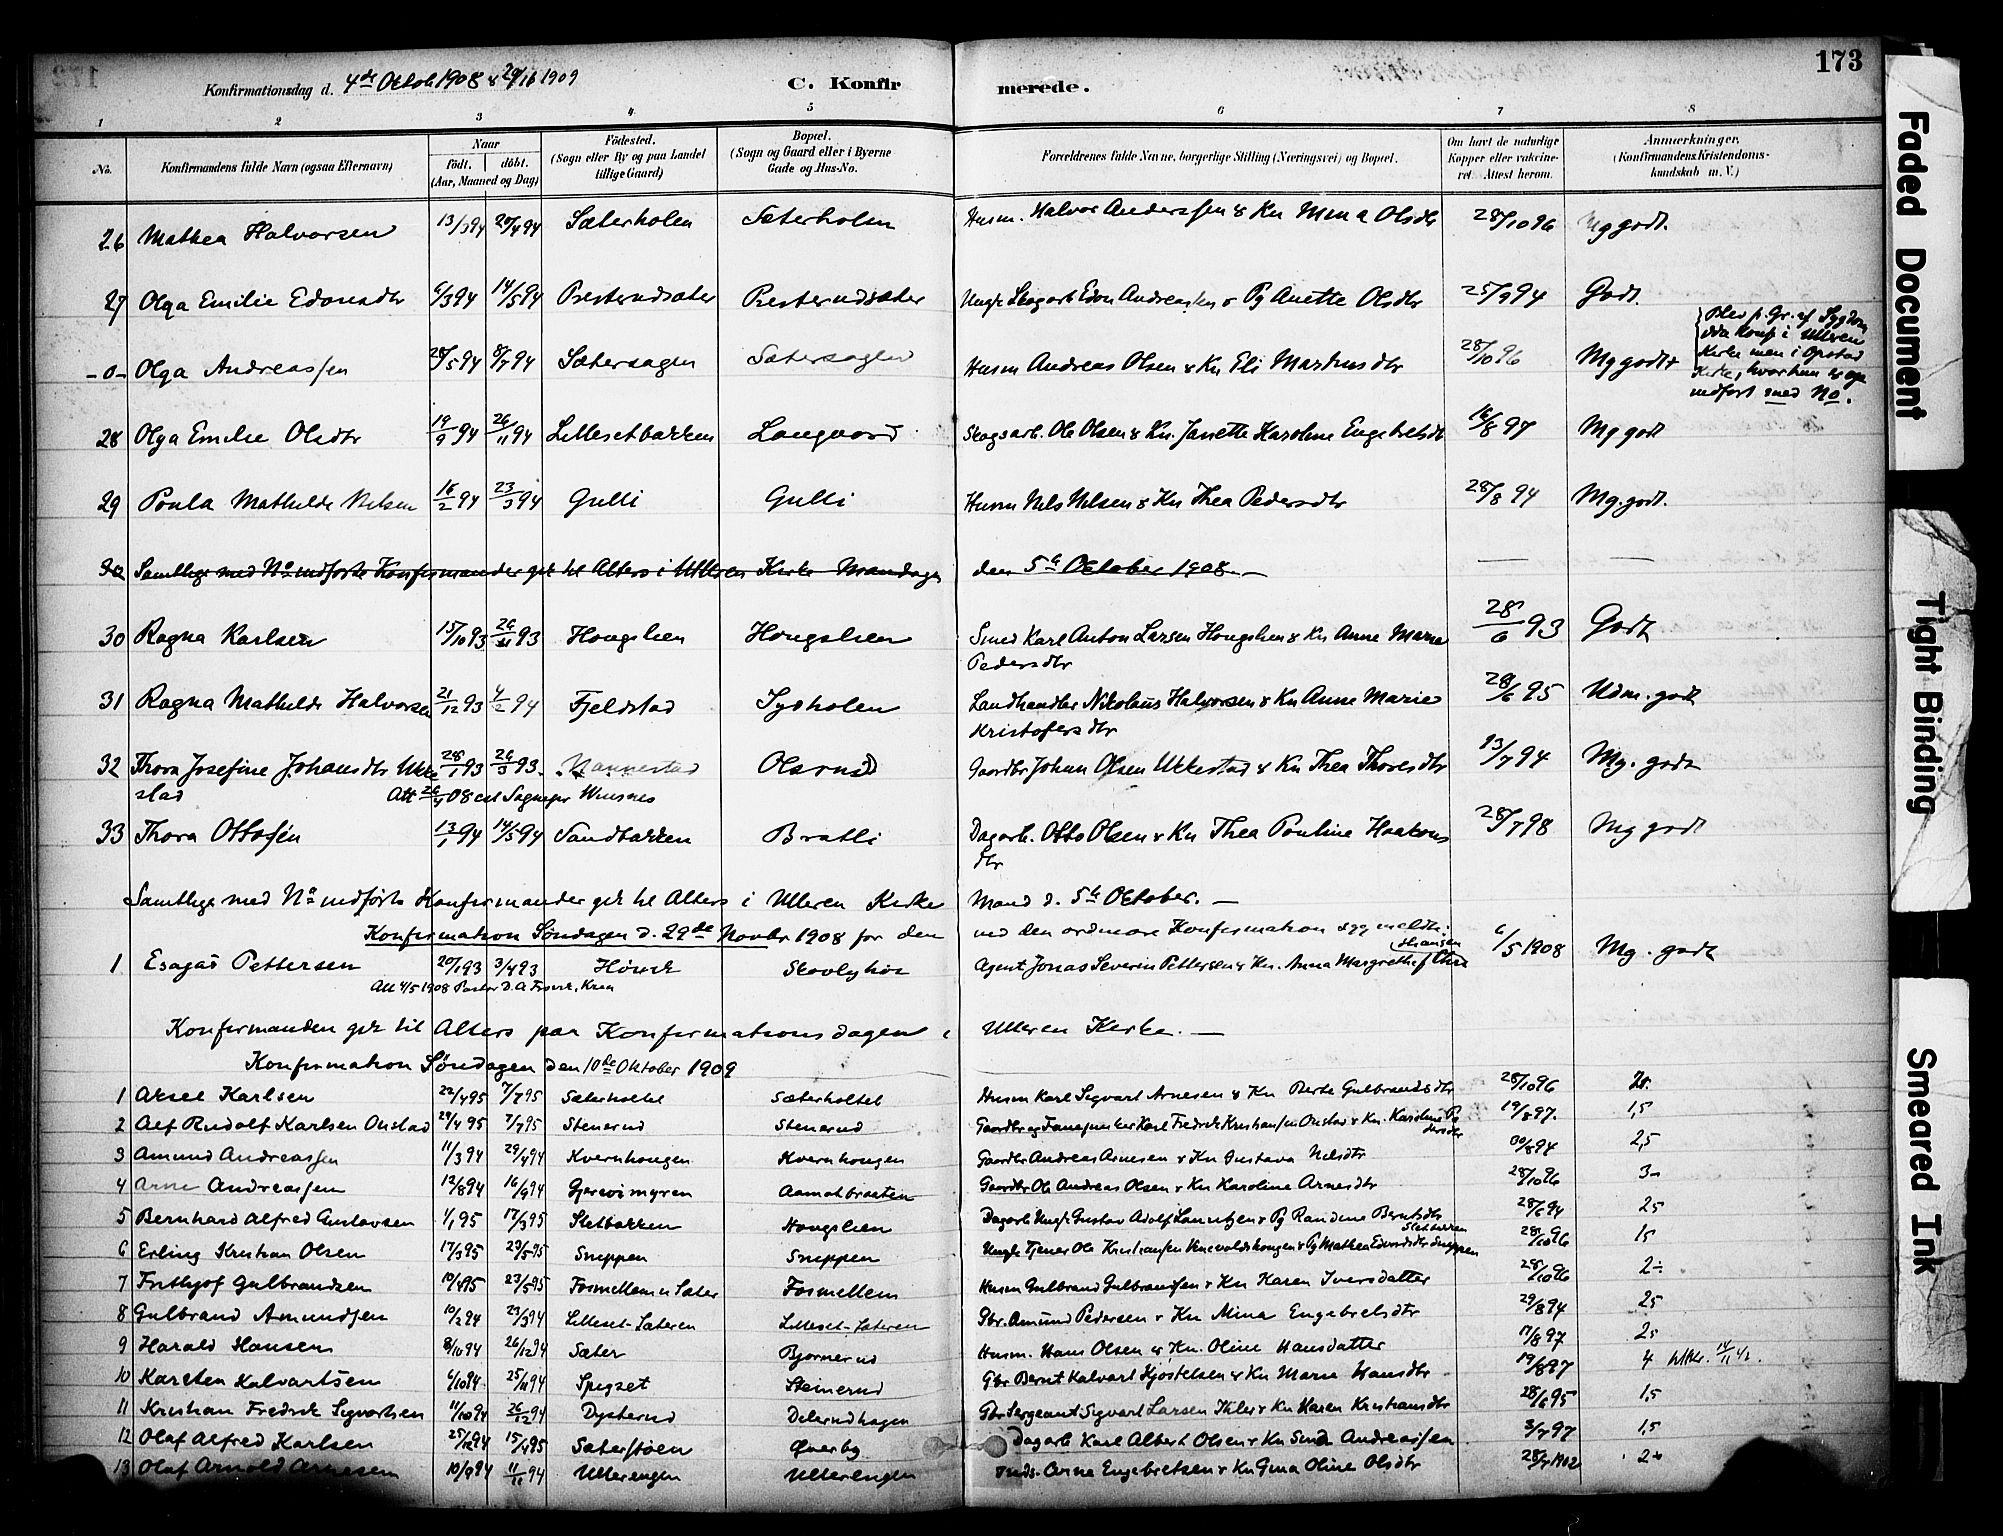 173
Konfirmationsdag d. 4de Octob 1908 & 29/10 1909 C. Konfirmerede.
1 2 3 4 5 6 7 8
No. Konfirmandens fulde Navn (ogsaa Efternavn) Naar födt. döbt. (Aar, Maaned og Dag) Födested. (Sogn eller By og paa Landet tillige Gaard) Bopæl. (Sogn og Gaard eller i Byerne Gade og Hus-No. Forældrenes fulde Navne, borgerlige Stilling (Næringsvei) og Bopæl. Om havt de naturlige Kopper eller vakcineret. Attest herom. Anmærkninger. (Konfirmandens Kristendomskundskab m. V.)
26 Mathea Halvorsen 13/3 94 29/4 94 Sæterholen Sæterholen Husm. Halvor Anderssen & Kn Mina Olsdtr 28/10 96 Mg godt.
27 Olga Emilie Edonsdtr 6/3 94 14/5 94 Presterudsæter Presterudsæter Ungk Skogarb Edon Andreassen & Pg Anette Olsdtr 25/9 94 Godt.
-0- Olga Andreassen 28/5 94 8/7 94 Sætersagen Sætersagen Husm Andreas Olsen & Kn Eli Martinsdtr 28/10 96 Mg godt
Blev p. Gr. af Sygdom ikke konf i Ulleren Kirke men i Opstad Kirke, hvor hun er opp indført med No.
28 Olga Emilie Olsdtr 19/9 94 26/11 94 Lillesetbakken Langvard Skogsarb. Ole Olsen & Kn. Janette Karoline Engebretsdtr 16/8 97 Mg godt
29 Poula Mathilde Nilsen 16/2 94 23/3 94 Gulli Gulli Husm Nils Nilsen & Kn Thea Pedersdtr 28/8 94 Mg. godt.
30 Samtlige med No indførte Konfirmander gik til Alters i Ulleren Kirke Mandagen den 5te October 1908. —
30 Ragna Karlsen 15/10 93 26/11 93 Hougslien Hougslien Smed Karl Anton Larsen Hougslien & Kn Anne Marie Pedersdtr 28/6 93 Godt
31 Ragna Mathilde Halvorsen 21/12 93 4/2 94 Fjeldstad Sydholen Landhandler Nikolaus Halvorsen & Kn Anne Marie Kristofersdtr 28/6 95 Udm. godt
32 Thora Josefine Johansdtr Ukkestad 28/1 93 26/3 93. Nannestad Olsrud Gaardbr Johan Olsen Ukkestad & Kn Thea Thoresdtr 13/7 94 Mg. godt
33 Thora Ottosen 13/1 94 14/5 94 Sandbakken Bratli Dagarb. Otto Olsen & Kn Thea Pouline Haakonsdtr 28/7 98 Mg godt
Samtlige med No indførte Konfirmander gik til Alters i Ulleren Kirke Mand d. 5te October. —
Konfirmation Søndagen d. 29de Novbr 1908 for den ved den ordinære Konfirmation sygmeldte:
1 Esaias Pettersen 20/1 93 3/4 93 Skovlyhøi Agent Jonas Severin Pettersen & Kn. Anna Margrethe 6/5 1908 Mg. godt
Konfirmanden gik til Alters paa Konfirmationsdagen i Ulleren Kirke. —
Konfirmation Søndagen den 10de Oktober 1909
1 Aksel Karlsen 22/4 95 7/7 95 Sæterholtet Sæterholtet Husm Karl Sigvart Arnesen & Kn Berte Gulbrandsdtr 28/10 96
2 Alf Rudolf Karlsen Onstad 29/4 95 7/7 95 Stenerud Stenerud Gaardbr og Karl Fredrik Kristiansen Onstad & Kn. Karoline Pedersdtr 19/8 97. 1,5
3 Amund Andreassen 11/3 94 29/4 94 Kvernhougen Kvernhougen Gaardbr Andreas Arnesen & Kn Gustava Nilsdtr 30/8 94 2,5
4 Arne Andreassen 12/8 94 16/9 94 Gjerevimyren Aamotbraaten Gaardbr Ole Andreas Olsen & Kn Karoline Arnesdtr 28/10 96
5 Bernhard Alfred Gustavsen 4/1 95 17/3 95 Sletbakken Hougslien Dagarb Ungk Gustav Adolf Lauritzen & Pg Randine Berntsdtr Sletbakken 28/6 94 25
6 Erling Kristian Olsen 17/3 95 23/5 95 Sneppen Sneppen Ungk Tjener Ole Kristiansen & Pg Mathea Edvardsdtr Sneppen 28/10 96 15
7 Frithjof Gulbrandsen 10/4 95 23/5 95 Fosmellem Sæter Fosmellem Husm Gulbrand Gulbrandsen & Kn Karen Iversdatter 28/10 96 2÷
8 Gulbrand Amundsen 10/2 94 23/3 94 Lilleset-Sæteren Lilleset-Sæteren Gbr. Amund Pedersen & Kn Mina Engebretsdtr 29/8 94 25
9 Harald Hansen 8/10 94 26/12 94 Sæter Bjørnerud Husm. Hans Olsen & Kn. Oline Hansdatter 17/8 97 25
10 Karsten Kalvartsen 6/10 94 25/11 94 Spigset Steinerud Gbr Bernt Kalvart Kjøstelsen & Kn Marie Hansdtr 19/8 97 4
11 Kristian Fredrik Sigvartsen 11/10 94 26/12 94 Dysterud Delerudhagen Gbr Sergeant Sigvart Larsen & Kn Karen Kristiansdtr 28/6 95 1,5
12 Olaf Alfred Karlsen 25/12 94 15/4 95 Sæterstøen Øverby Dagarb Karl Albert Olsen & Kn Andreassen 3/7 97 1,5
13 Olaf Arnold Arnesen 10/9 94 11/11 94 Ullerengen Ullerengen Arne Engebretsen & Kn Gina Oline Olsdtr 28/7 1902
Faded Document
Tight Binding
Smeared Ink